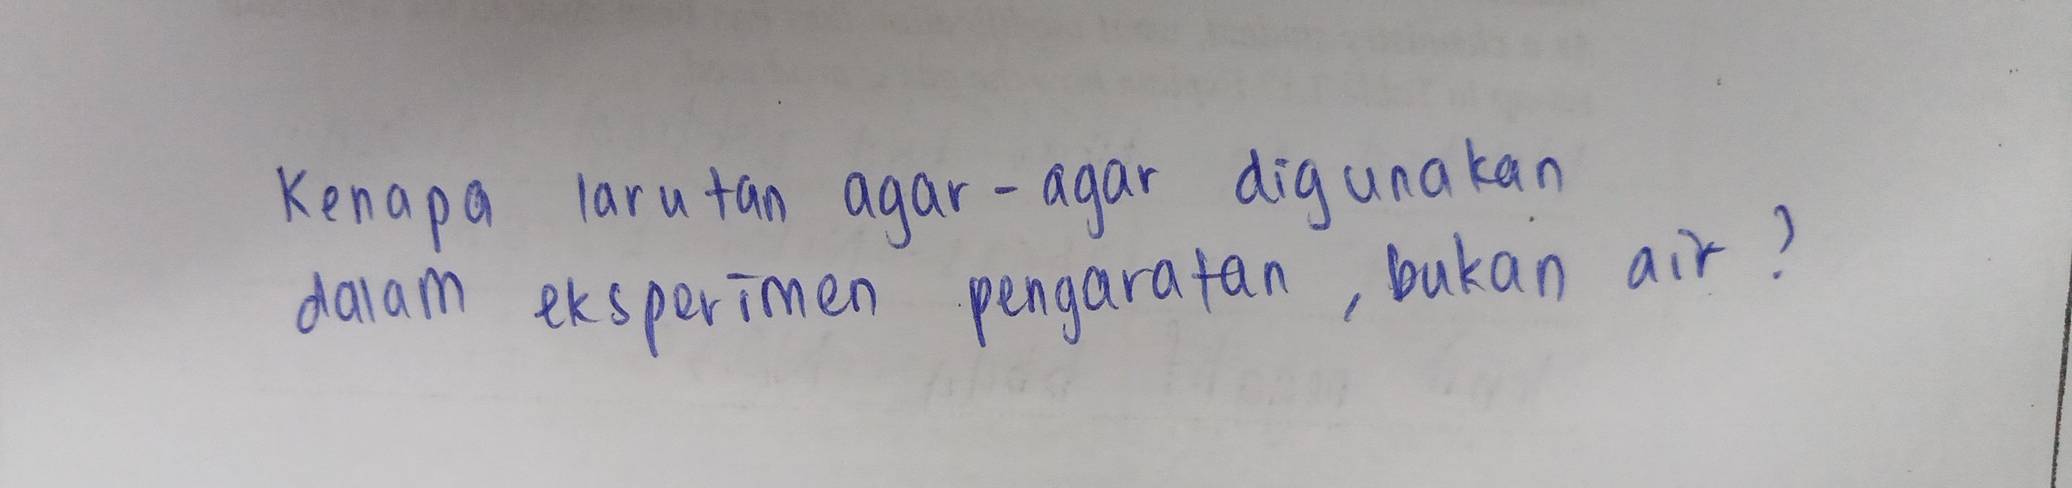 Kenapa larutan agar-agar digunakan
dalam eksperimen pengaratan, bukan air?